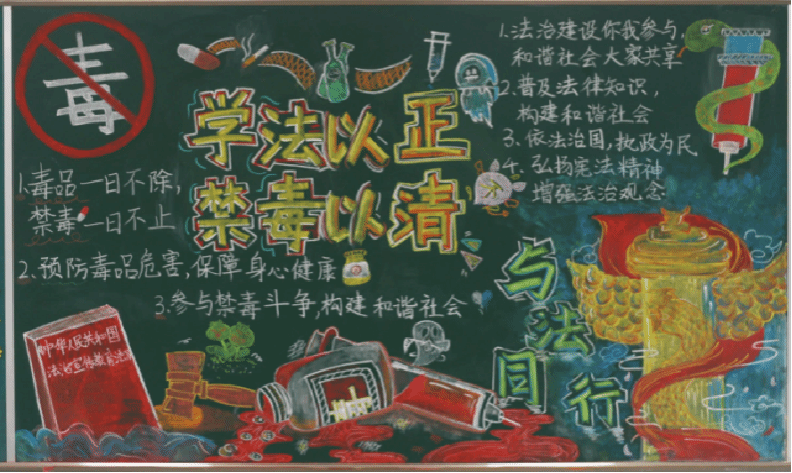 毒
学法以正
禁毒以清
1.毒品一日不除,
禁毒一日不止
2.预防毒品危害,保障身心健康
3.参与禁毒斗争,构建和谐社会
1.法治建设你我参与,
和谐社会大家共享
2.普及法律知识,
构建和谐社会
3.依法治国,执政为民
4.弘扬宪法精神
增强法治观念
与法
同行
中华人民共和国